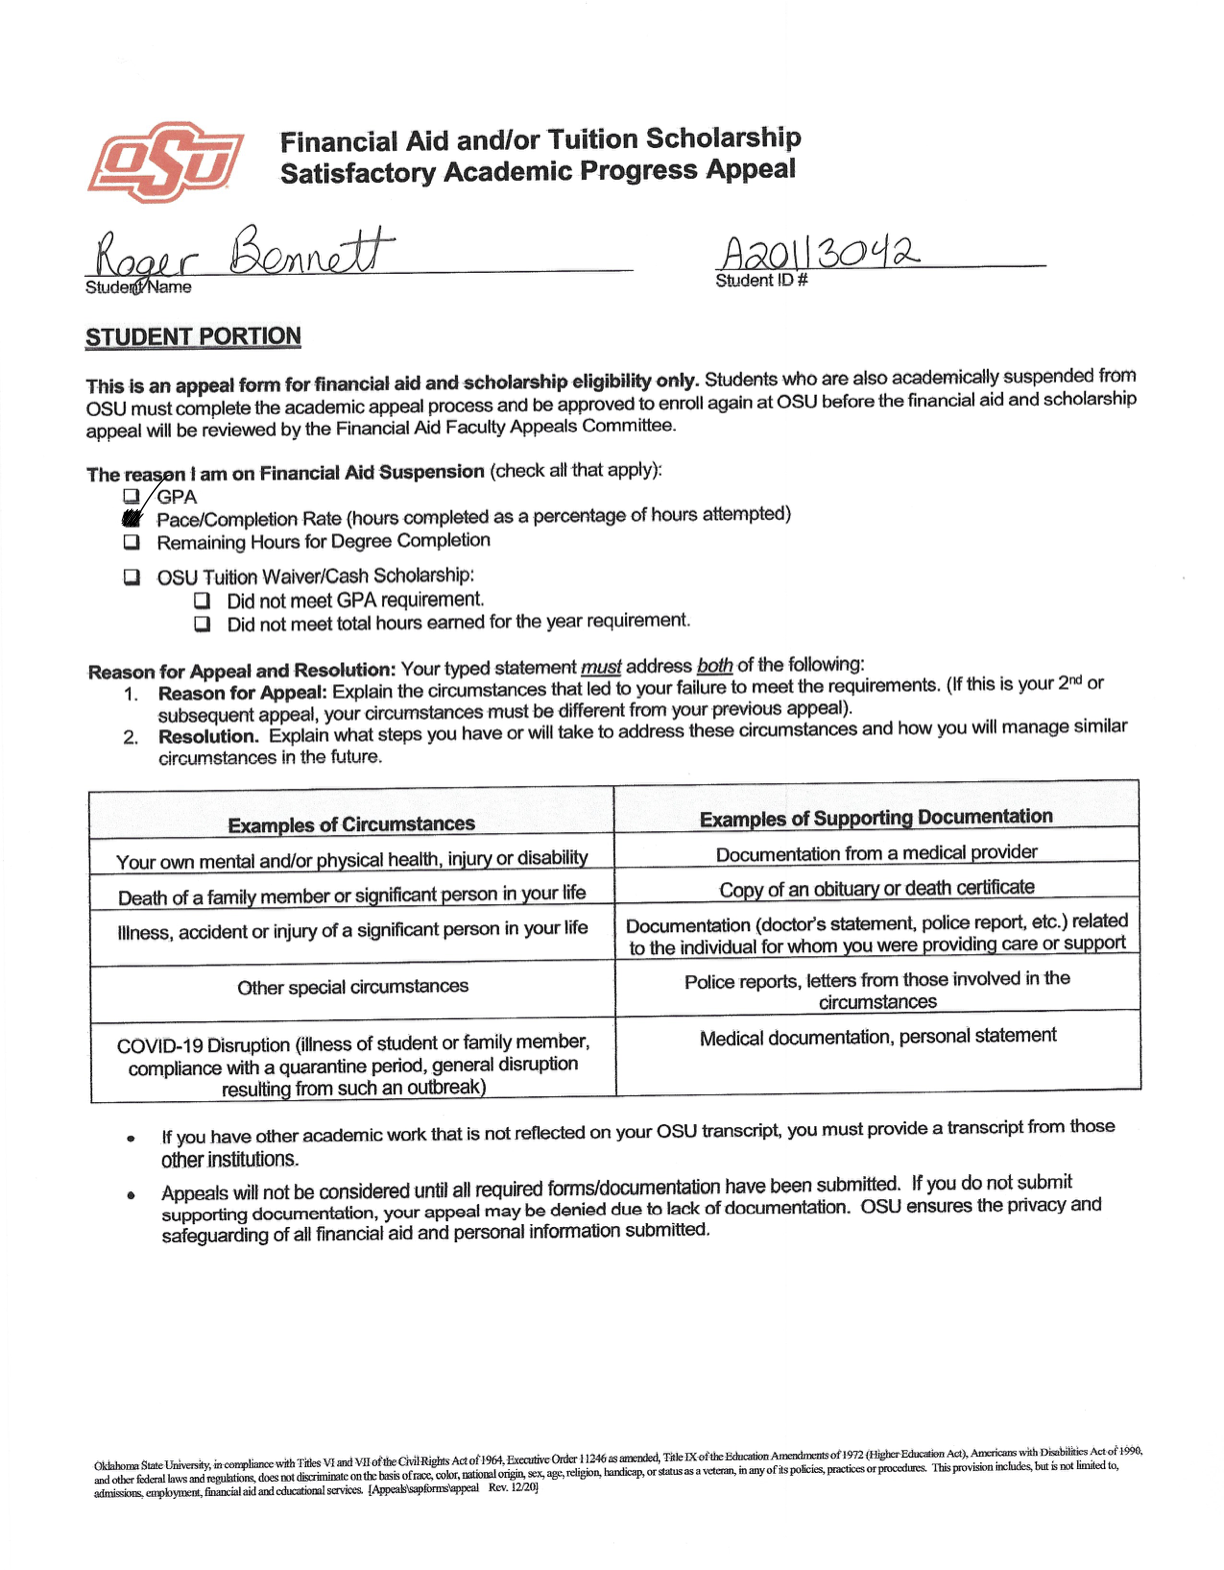 OSU
Financial Aid and/or Tuition Scholarship
Satisfactory Academic Progress Appeal
Roger Bennett
A20113042
Student Name
Student ID #
STUDENT PORTION
This is an appeal form for financial aid and scholarship eligibility only. Students who are also academically suspended from
OSU must complete the academic appeal process and be approved to enroll again at OSU before the financial aid and scholarship
appeal will be reviewed by the Financial Aid Faculty Appeals Committee.
The reason I am on Financial Aid Suspension (check all that apply):
GPA
Pace/Completion Rate (hours completed as a percentage of hours attempted)
Remaining Hours for Degree Completion
OSU Tuition Waiver/Cash Scholarship:
Did not meet GPA requirement.
Did not meet total hours earned for the year requirement.
Reason for Appeal and Resolution: Your typed statement must address both of the following:
1. Reason for Appeal: Explain the circumstances that led to your failure to meet the requirements. (If this is your 2nd or
subsequent appeal, your circumstances must be different from your previous appeal).
2. Resolution. Explain what steps you have or will take to address these circumstances and how you will manage similar
circumstances in the future.
Examples of Circumstances
Examples of Supporting Documentation
Your own mental and/or physical health, injury or disability
Documentation from a medical provider
Death of a family member or significant person in your life
Copy of an obituary or death certificate
Illness, accident or injury of a significant person in your life
Documentation (doctor's statement, police report, etc.) related
to the individual for whom you were providing care or support
Other special circumstances
Police reports, letters from those involved in the
circumstances
COVID-19 Disruption (illness of student or family member,
compliance with a quarantine period, general disruption
resulting from such an outbreak)
Medical documentation, personal statement
• If you have other academic work that is not reflected on your OSU transcript, you must provide a transcript from those
other institutions.
• Appeals will not be considered until all required forms/documentation have been submitted. If you do not submit
supporting documentation, your appeal may be denied due to lack of documentation. OSU ensures the privacy and
safeguarding of all financial aid and personal information submitted.
Oklahoma State University, in compliance with Titles VI and VII of the Civil Rights Act of 1964, Executive Order 11246 as amended, Title IX of the Education Amendments of 1972 (Higher Education Act), Americans with Disabilities Act of 1990,
and other federal laws and regulations, does not discriminate on the basis of race, color, national origin, sex, age, religion, handicap, or status as a veteran, in any of its policies, practices or procedures. This provision includes, but is not limited to,
admissions, employment, financial aid and educational services. [Appeals\sapforms\appeal Rev. 12/20]